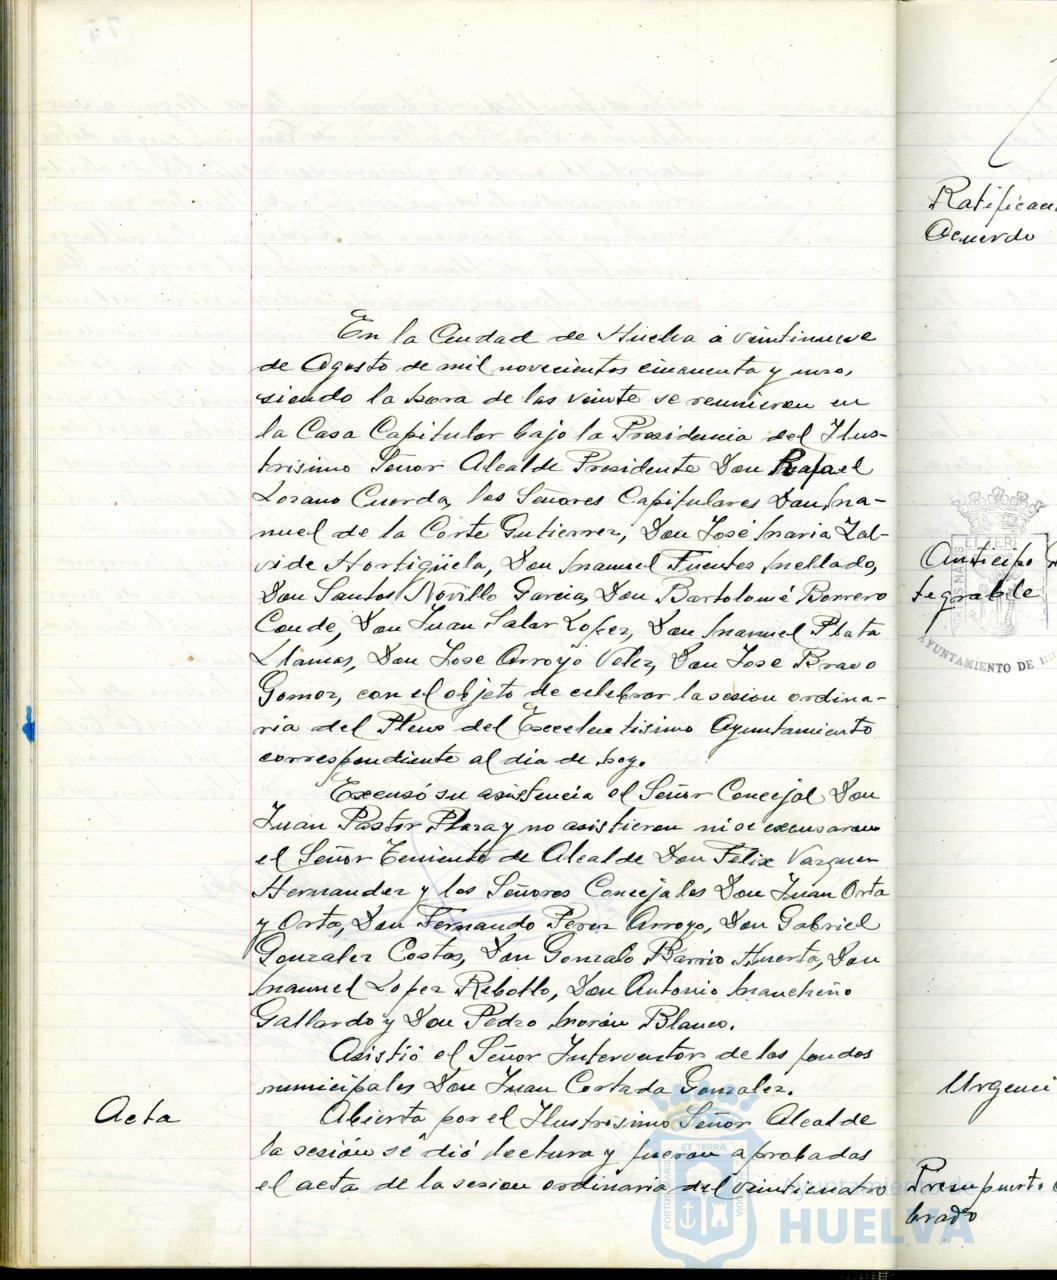 En la Ciudad de Huelva a veintinueve
de Agosto de mil novecientos cincuenta y uno,
siendo la hora de las veinte se reunieron en
la Casa Capitular bajo la Presidencia del Ilus-
trisimo Señor Alcalde Presidente Don Rafael
Lozano Cuerda, los Señores Capitulares Don Ma-
nuel de la Corte Gutierrez, Don José Maria Zal-
vide Hortigüela, Don Manuel Fuentes Mellado,
Don Santos Novillo Garcia, Don Bartolomé Borrero
Conde, Don Juan Salar Lopez, Don Manuel Plata
Llamas, Don Jose Arroyo Velez, Don Jose Bravo
Gomez, con el objeto de celebrar la sesion ordina-
ria del Pleno del Excelentisimo Ayuntamiento
correspondiente al dia de hoy.
Excusó su asistencia el Señor Concejal Don
Juan Pastor Plaza y no asistieron ni se excusaron
el Señor Teniente de Alcalde Don Felix Vazquez
Hernandez y los Señores Concejales Don Juan Orta
y Orta, Don Fernando Perez Arroyo, Don Gabriel
Gonzalez Costas, Don Gonzalo Barrio Huerta, Don
Manuel Lopez Rebollo, Don Antonio Mancheño
Gallardo y Don Pedro Morón Blanco.
Asistió el Señor Interventor de los fondos
municipales Don Juan Cortada Gonzalez.
Acta
Abierta por el Ilustrisimo Señor Alcalde
la sesión se dió lectura y fueron aprobadas
el acta de la sesion ordinaria del veinticuatro
Ratificaci
Acuerdo
Anticipo
tegrable
AYUNTAMIENTO DE
Urgenci
Presupuesto
brado
Ayuntamiento de
HUELVA